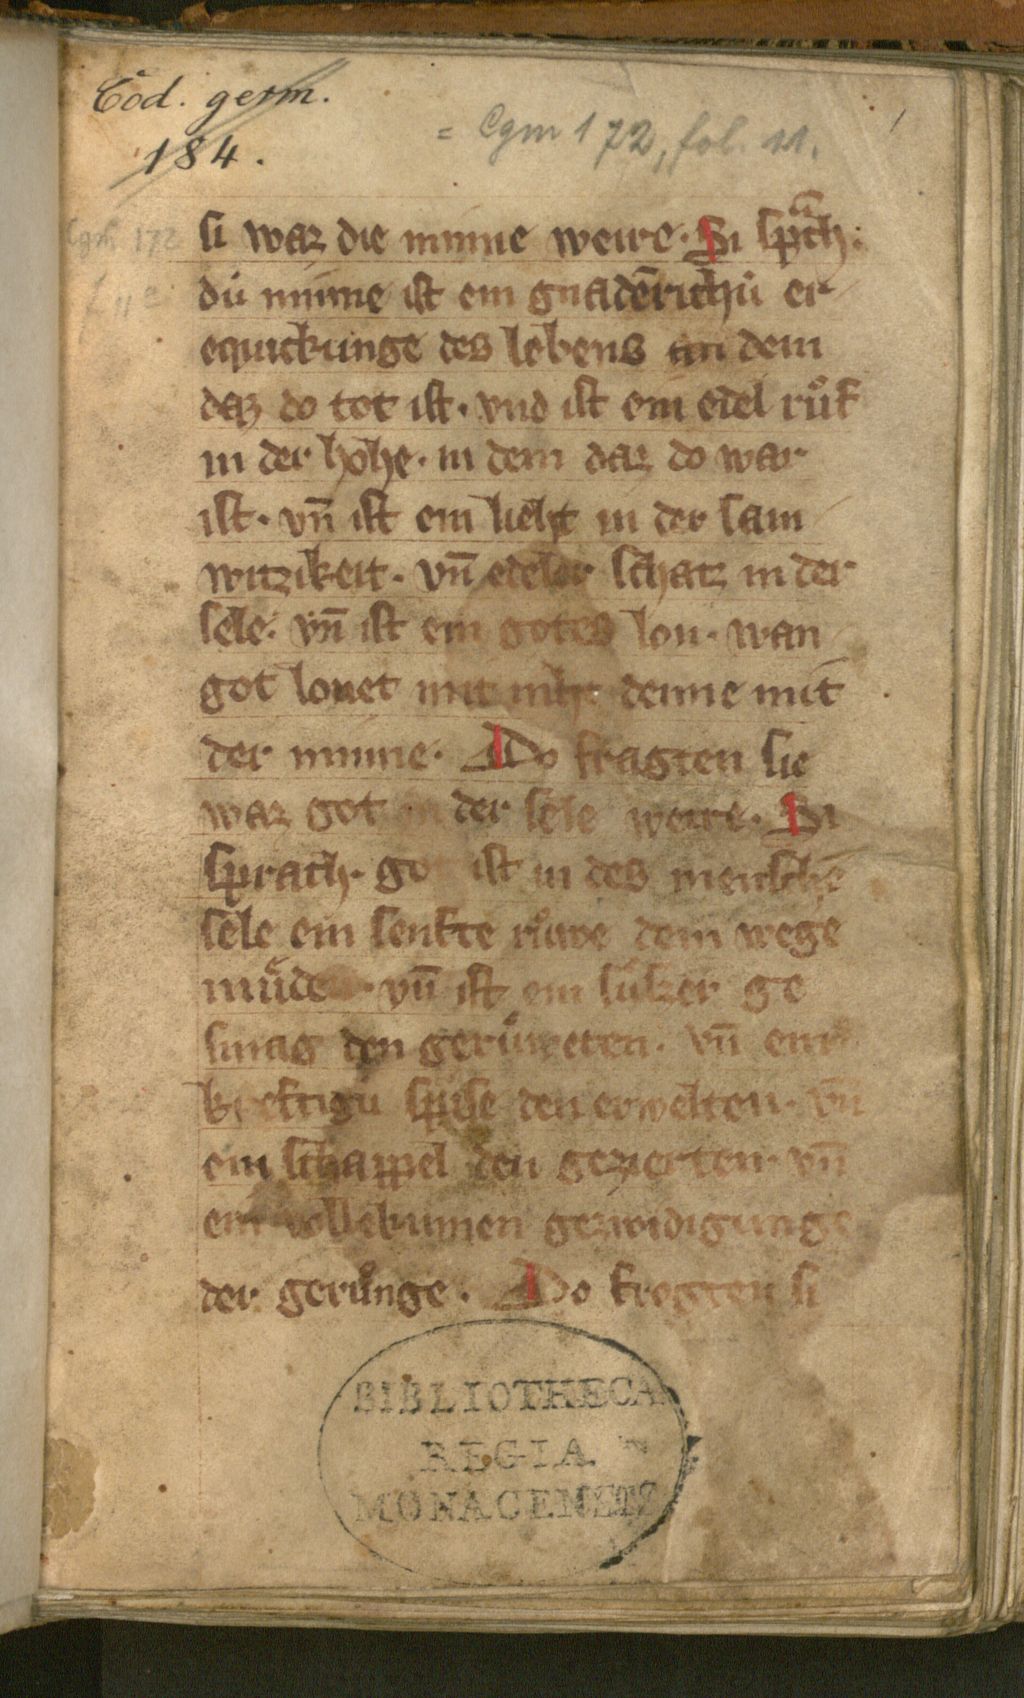 Cod. germ.
184.
= Cgm 172, fol. 11.
1
Cgm 172
si waz die minne weire. Si sprͣch:
dú minne ist ein gnadēricḣú er
equickunge des lebens an dem
daz do tot ist. vnd ist ein edel ruͦk
in der hohe. in dem daz do war
ist. vn̄ ist ein lieht in der sam
witzikeit. vn̄ edeler schatz in der
sele. vn̄ ist ein gotes lon. wan
got lonet mit niht denne mit
der minne. Do fragten sie
waz got in der sele weire. Si
sprach. got ist in des menschē
sele ein senfte ruͦwe dem wege
muͤde . vn̄ ist ein suͤzer ge
smag den geruͦweten. vn̄ ein
kreftigú spise den erwelten. vn̄
ein schappel den gezierten. vn̄
ein vollekumen
der geruͦnge. Do fregten si
BIBLIOTHECA
REGIA
MONACENSIS